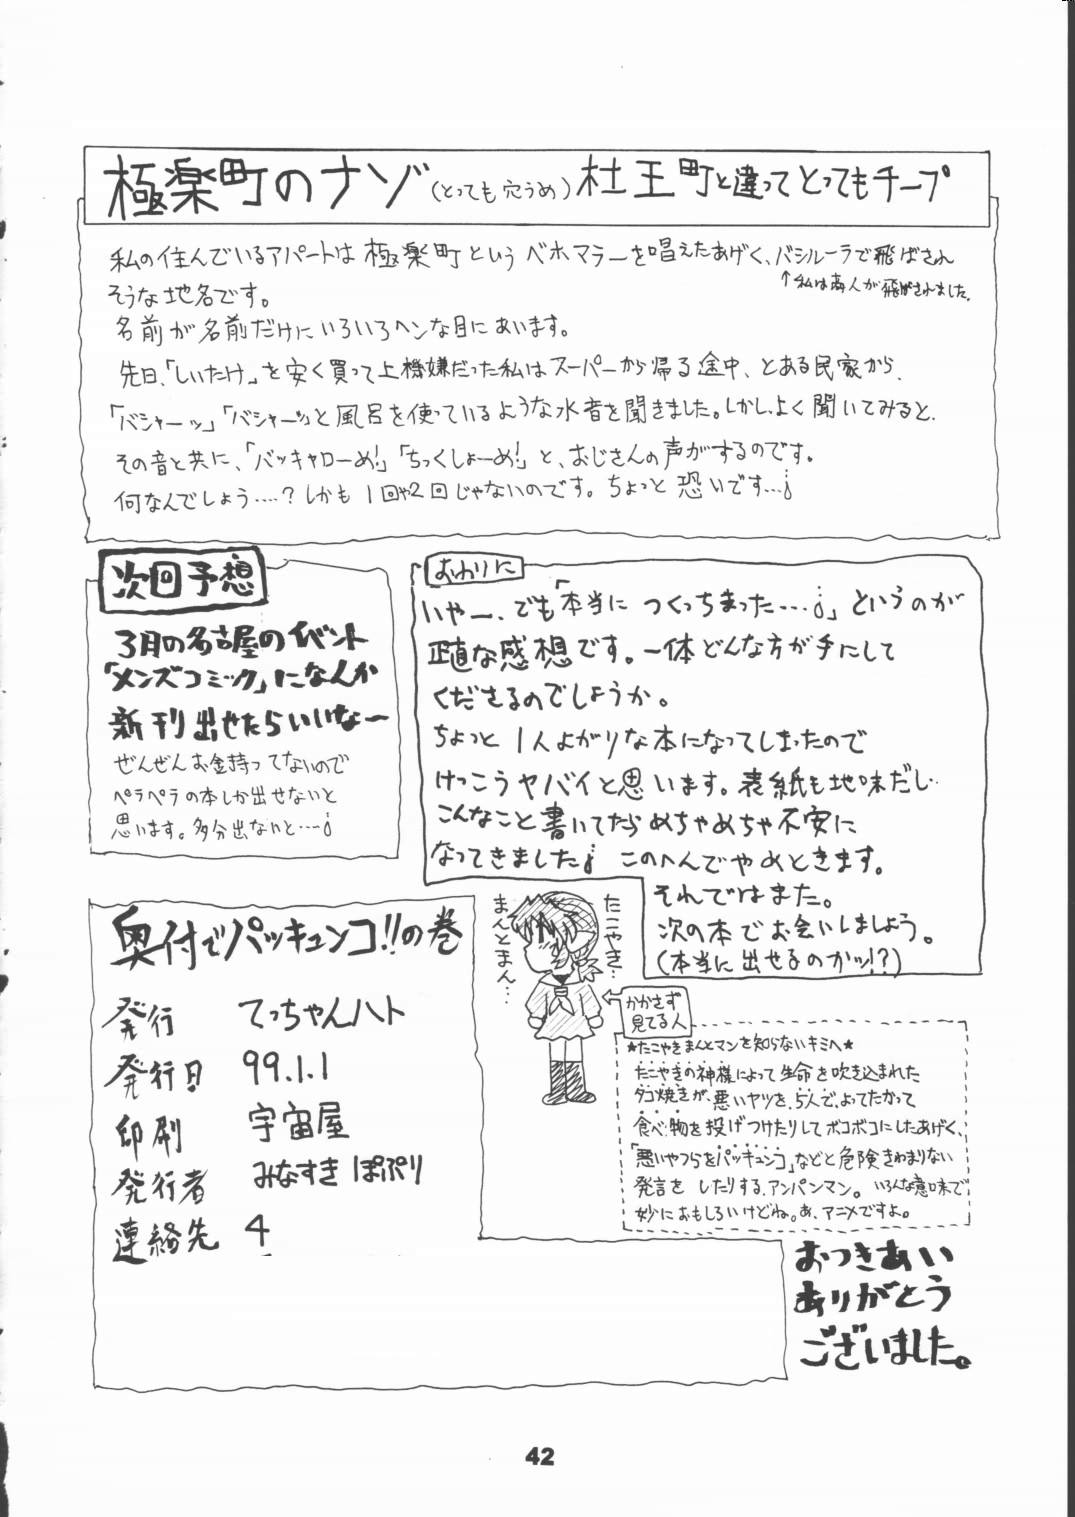 極楽町のナゾ(とっても穴うめ)杜王町と違ってとってもチープ
私の住んでいるアパートは極楽町というベホマラーを唱えたあげく、バシルーラで飛ばされ
そうな地名です。
↑私は商人が飛ばされました。
名前が名前だけにいろいろヘンな目にあいます。
先日、「しいたけ」を安く買って上機嫌だった私はスーパーから帰る途中、とある民家から、
「バシャーッ」「バシャーッ」と風呂を使っているような水音を聞きました。しかし、よく聞いてみると、
その音と共に、「バッキャローめ!」「ちっくしょーめ!」と、おじさんの声がするのです。
何なんでしょう‥‥?しかも1回や2回じゃないのです。ちょっと恐いです…。
次回予想
3月の名古屋のイベント
「メンズコミック」になんか
新刊出せたらいいな〜
ぜんぜんお金持ってないので
ペラペラの本しか出せないと
思います。多分出ないと…。
おわりに
いやー、でも「本当につくっちまった…。」というのが
正直な感想です。一体どんな方が手にして
くださるのでしょうか。
ちょっと1人よがりな本になってしまったので
けっこうヤバイと思います。表紙も地味だし‥
こんなこと書いてたらめちゃめちゃ不安に
なってきました。このへんでやめときます。
それではまた。
次の本でお会いしましょう。
(本当に出せるのかッ!?)
奥付でパッキュンコ!!の巻
発行 てっちゃんハト
発行日 99.1.1
印刷 宇宙屋
発行者 みなすき ぽぷり
連絡先 4
たこやき…
まんとまん…
かかさず
見てる人
★たこやきまんとマンを知らないキミへ★
たこやきの神様によって生命を吹き込まれた
タコ焼きが、悪いヤツを、5人で、よってたかって
食べ物を投げつけたりしてボコボコにしたあげく、
「悪いやつらをパッキュンコ」などと危険きわまりない
発言をしたりする、アンパンマン。いろんな意味で
妙におもしろいけどね。あ、アニメですよ。
おつきあい
ありがとう
ございました。
42